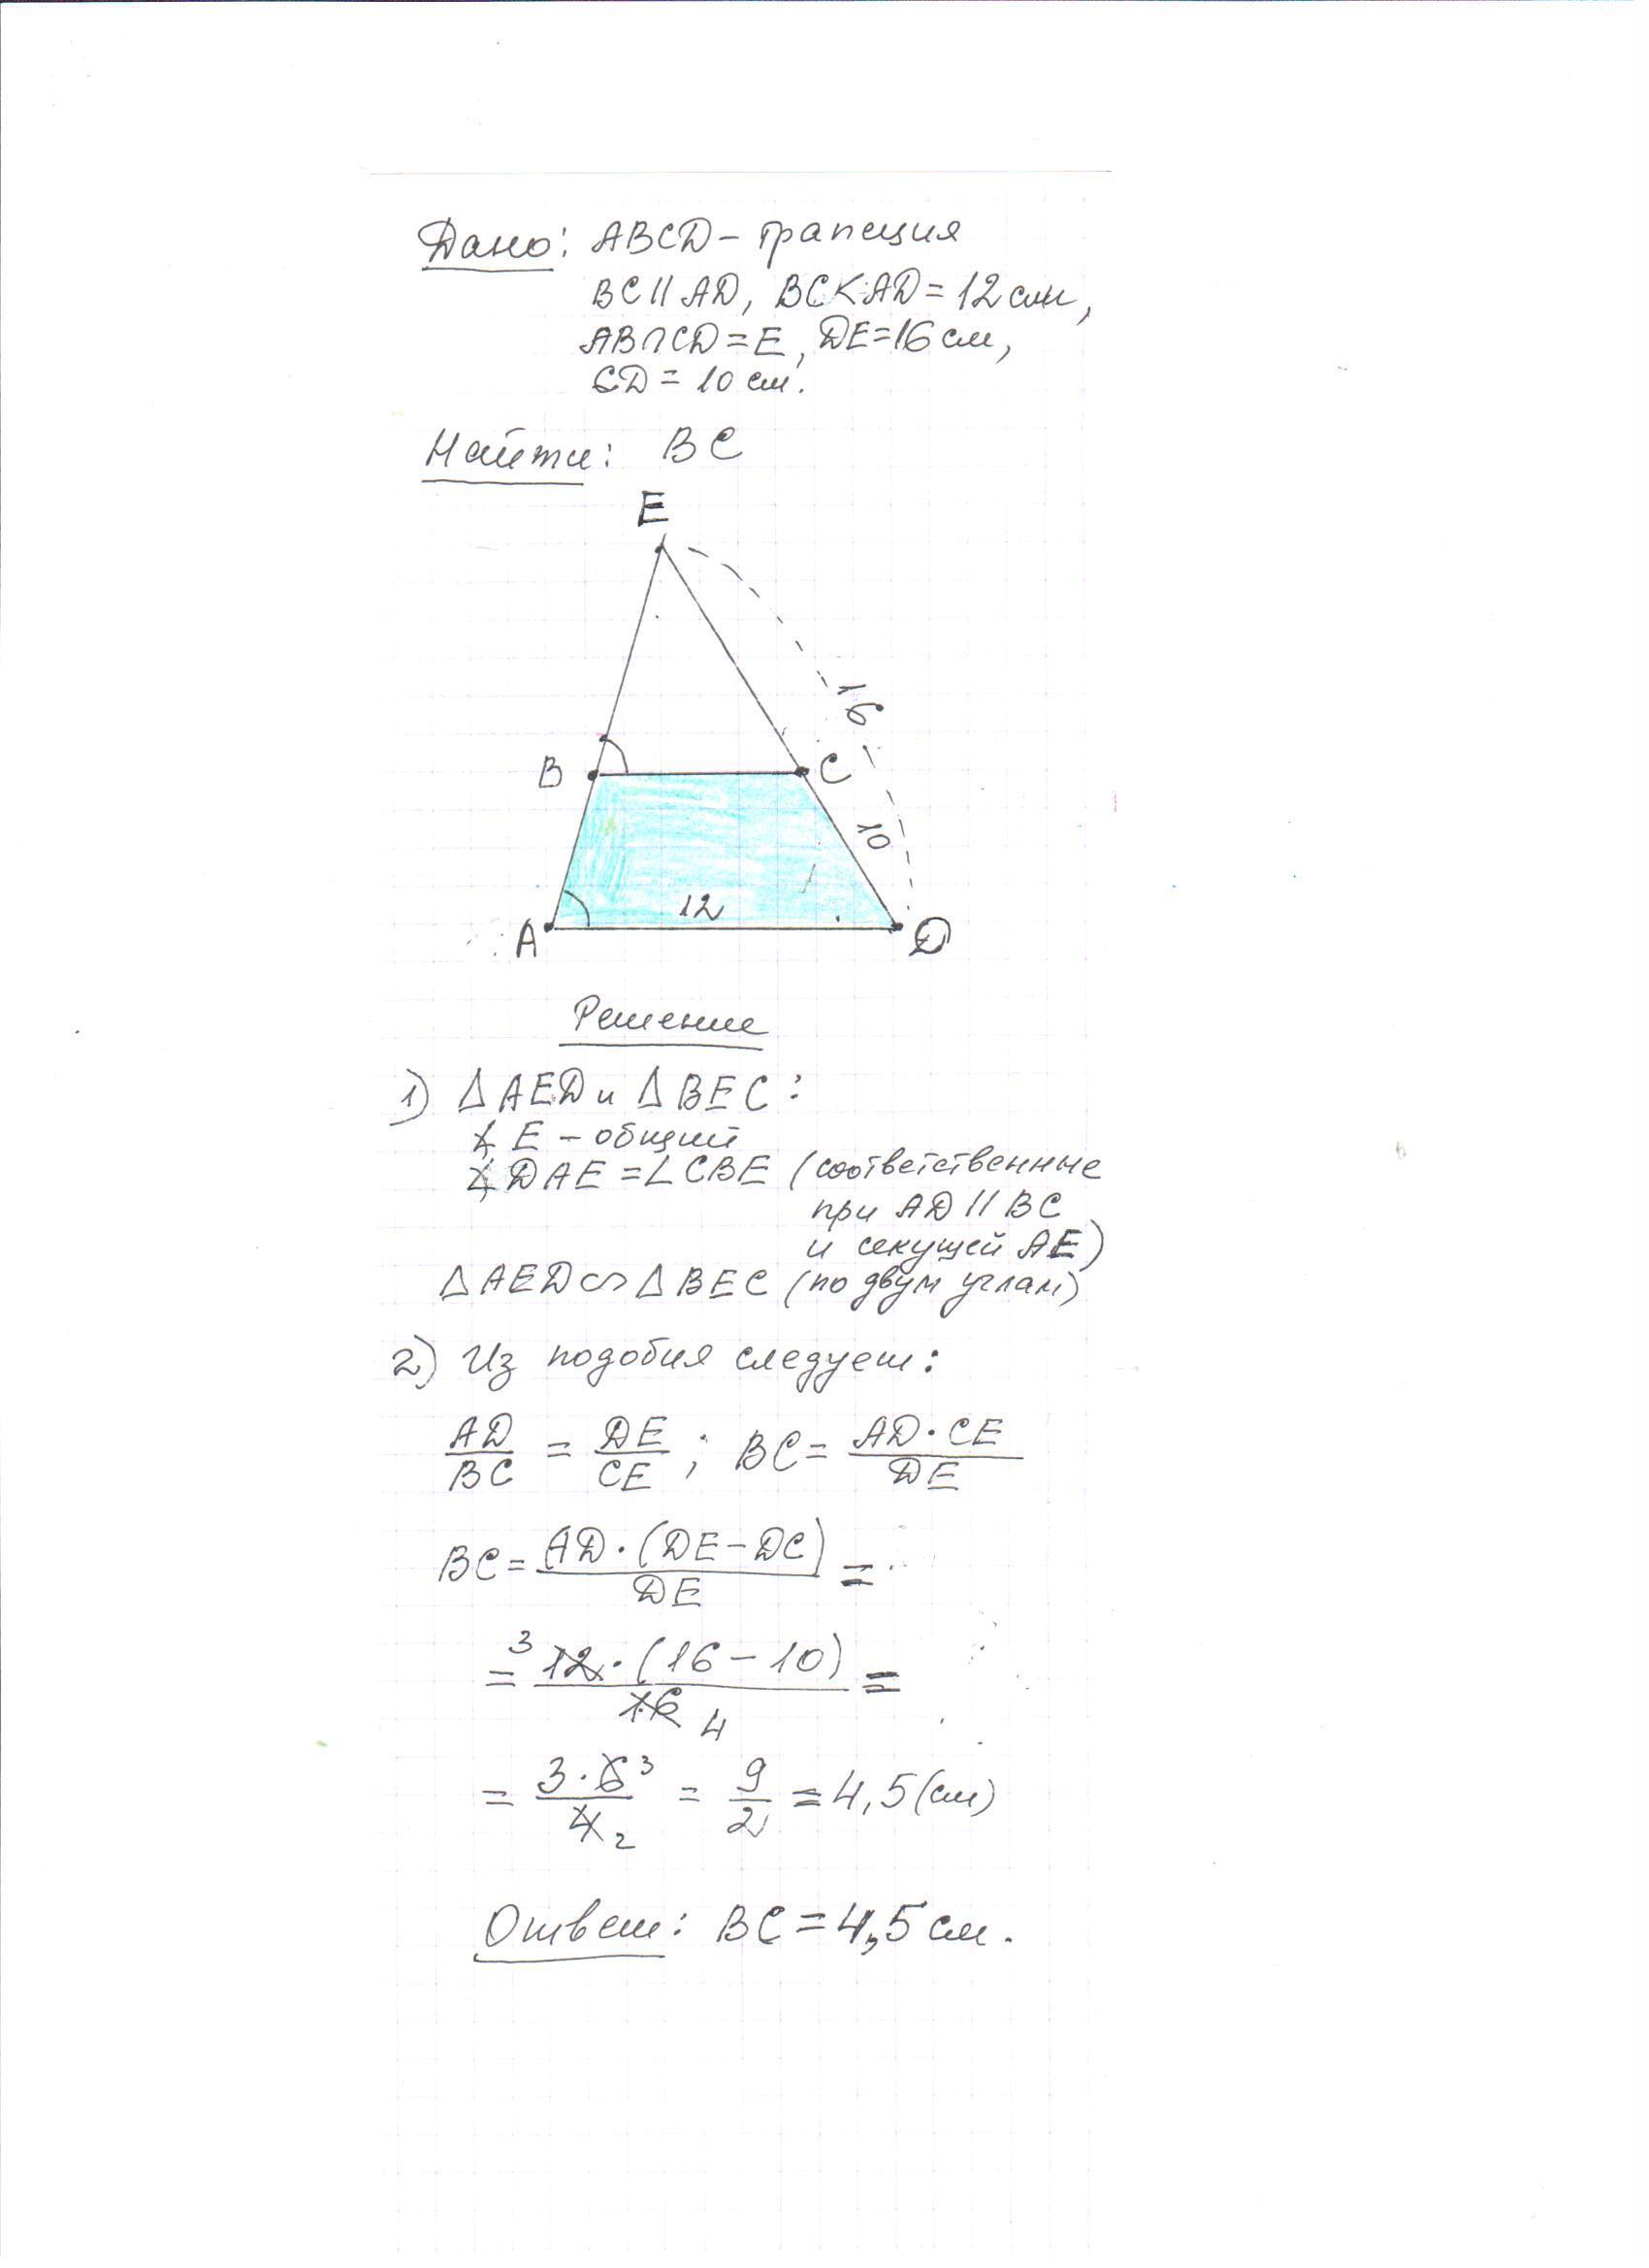 Дано: ABCD – трапеция
BC || AD, BC < AD = 12 см,
AB ∩ CD = E, DE = 16 см,
CD = 10 см.
Найти: BC
E
16
B
C
10
12
A
D
Решение
1) △AED и △BEC:
∡E – общий
∡DAE = ∠CBE (соответственные
при AD || BC
и секущей AE)
△AED ∽ △BEC (по двум углам)
2) Из подобия следует:
AD/BC = DE/CE ; BC = AD · CE/DE
BC = AD · (DE – DC)/DE =
= 3 12 · (16 – 10)/16 4 =
= 3 · 6 3/4 2 = 9/2 = 4,5 (см)
Ответ: BC = 4,5 см.